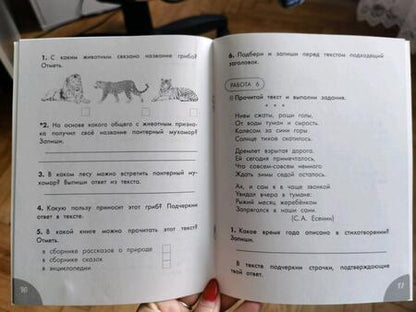 1. С каким животным связано название гриба?
Отметь.
*2. На основе какого общего с животным призна-
ка получил своё название пантерный мухомор?
Запиши.
3. В каком лесу можно встретить пантерный му-
хомор? Выпиши ответ из текста.
4. Какую пользу приносит этот гриб? Подчеркни
ответ в тексте.
5. В какой книге можно прочитать этот текст?
Отметь.
в сборнике рассказов о природе
в сборнике сказок
в энциклопедии
16
6. Подбери и запиши перед текстом подходящий
заголовок.
РАБОТА 6
Прочитай текст и выполни задания.
* * *
Нивы сжаты, рощи голы,
От воды туман и сырость.
Колесом за сини горы
Солнце тихое скатилось.
Дремлет взрытая дорога.
Ей сегодня примечталось,
Что совсем-совсем немного
Ждать зимы седой осталось.
Ах, и сам я в чаще звонкой
Увидал вчера в тумане:
Рыжий месяц жеребёнком
Запрягался в наши сани.
(С.А. Есенин)
1. Какое время года описано в стихотворении?
Запиши.
В тексте подчеркни строчки, подтверждающие
твой ответ.
17